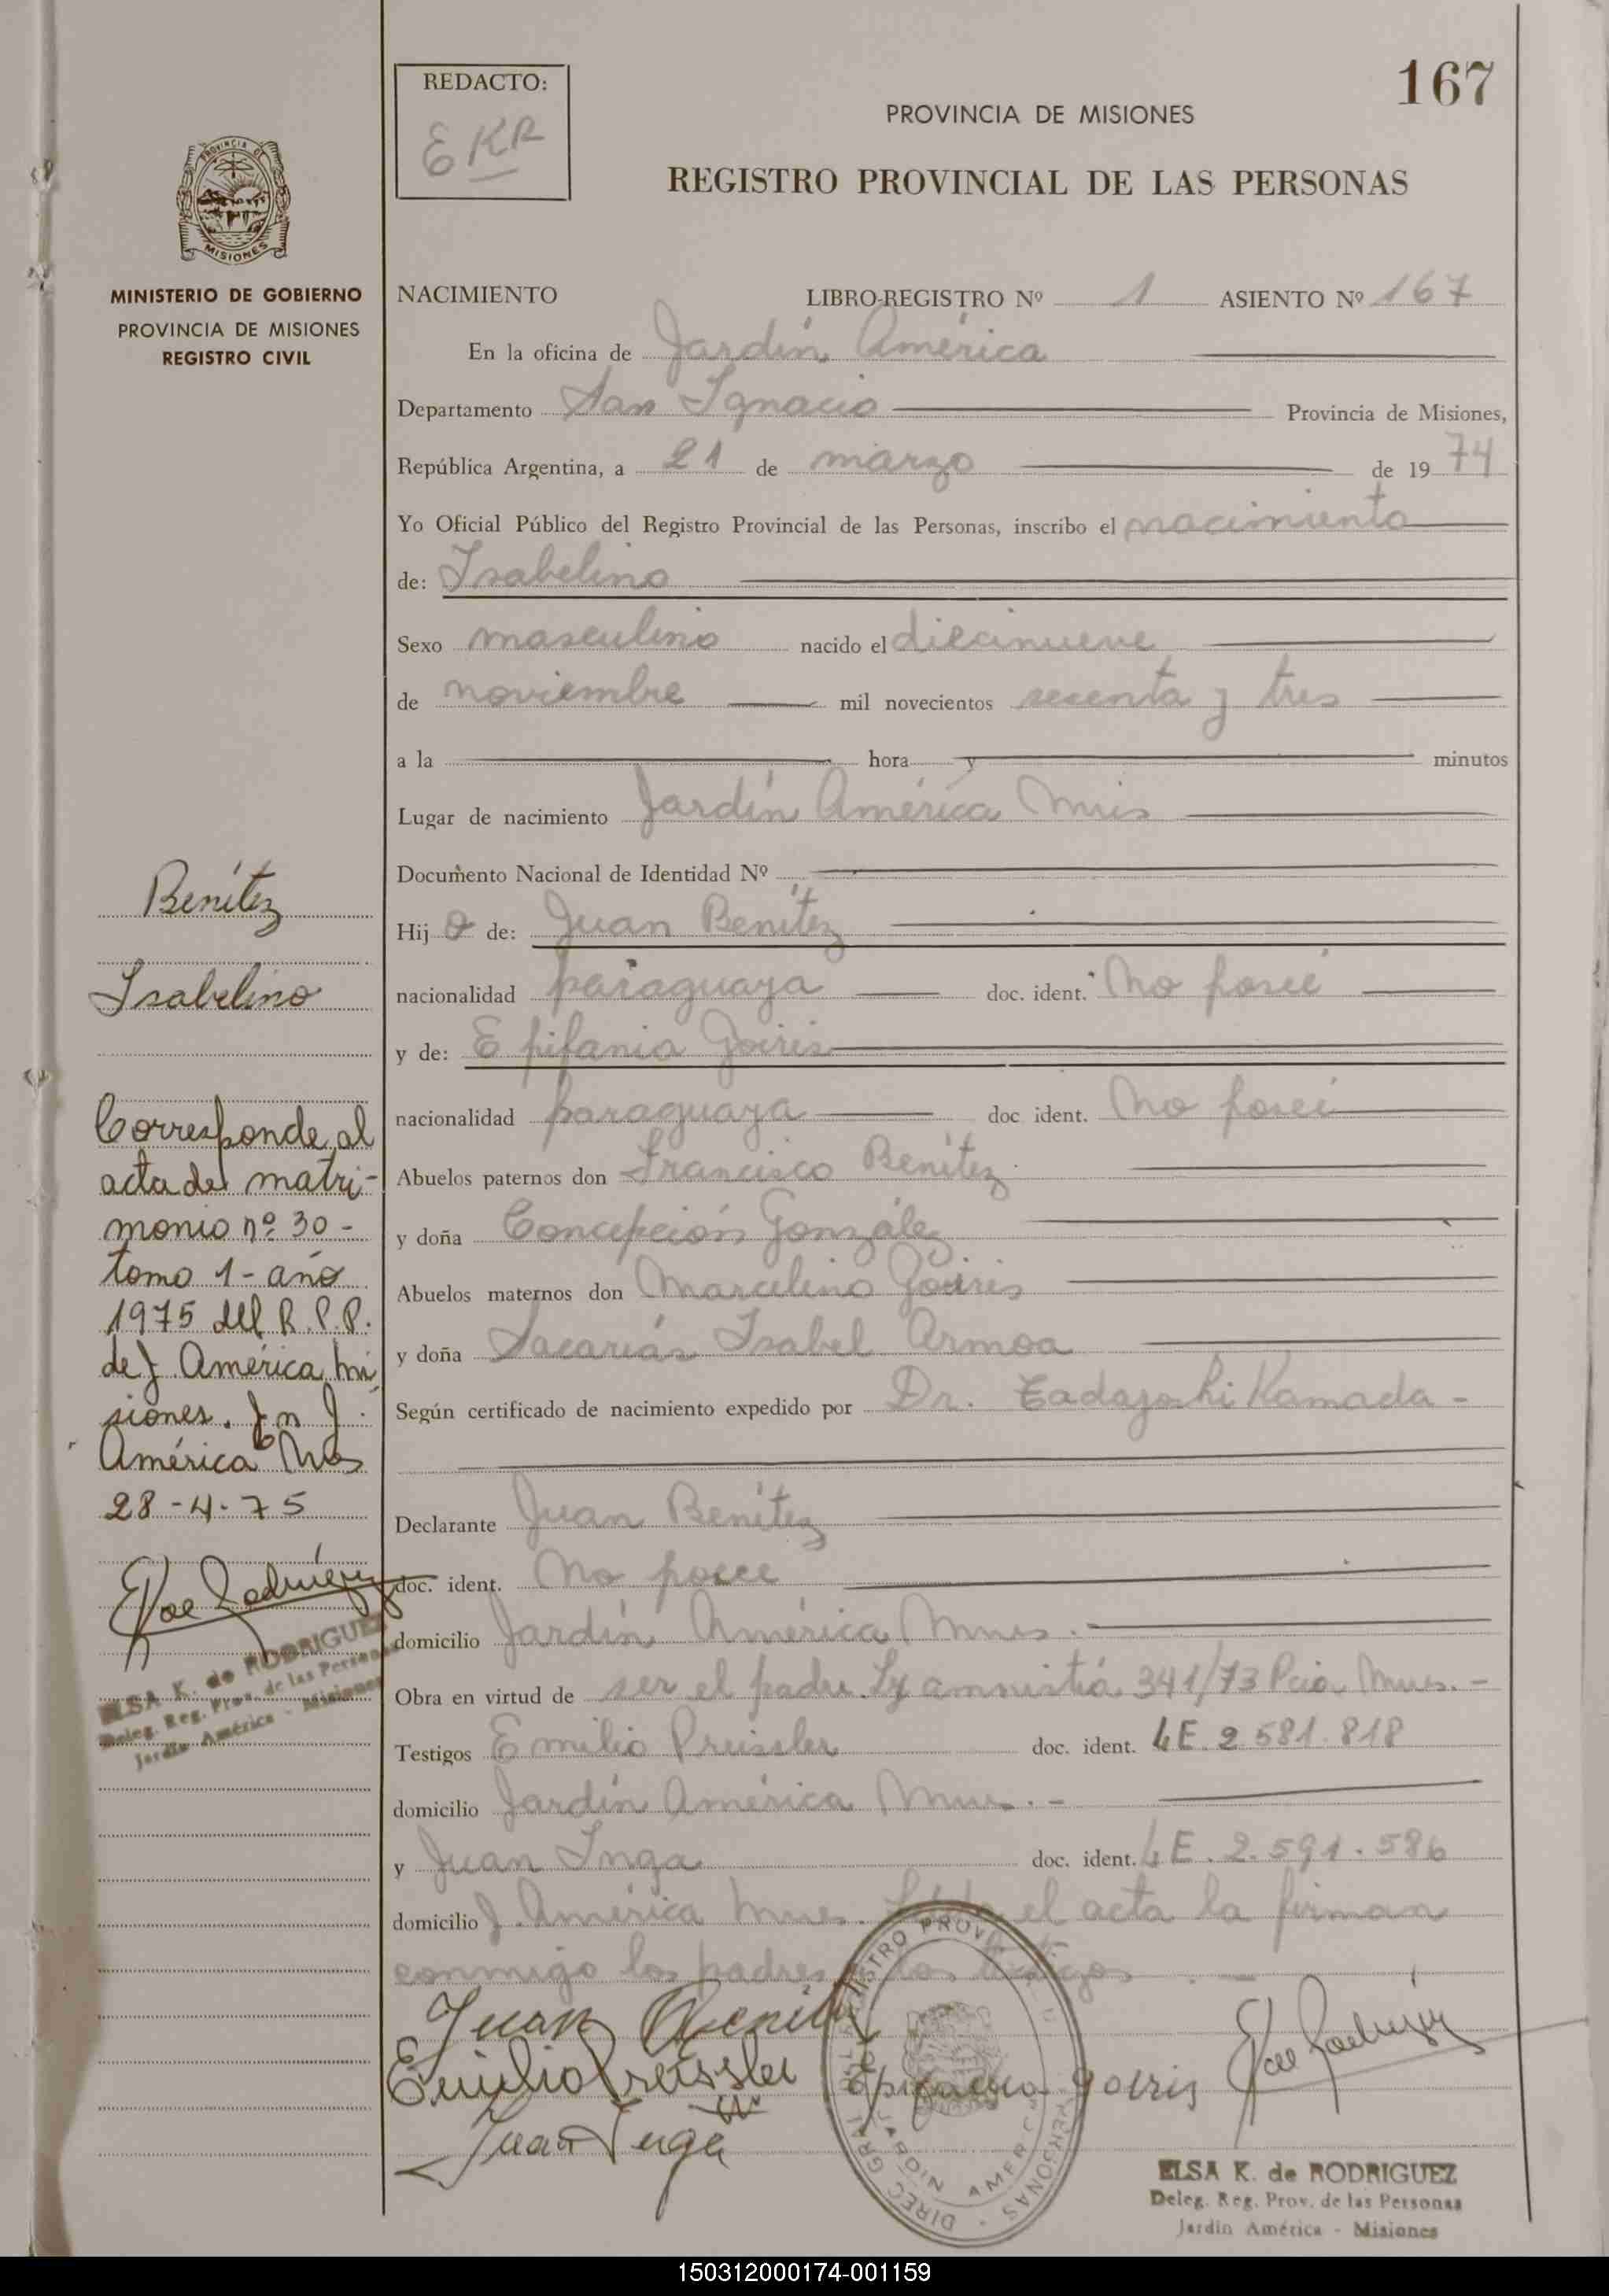 167
REDACTO:
EKR
PROVINCIA DE MISIONES
REGISTRO PROVINCIAL DE LAS PERSONAS
PROVINCIA DE
MISIONES
MINISTERIO DE GOBIERNO
PROVINCIA DE MISIONES
REGISTRO CIVIL
NACIMIENTO LIBRO-REGISTRO Nº 1 ASIENTO Nº 167
En la oficina de Jardín América
Departamento San Ignacio Provincia de Misiones,
República Argentina, a 21 de marzo de 1974
Yo Oficial Público del Registro Provincial de las Personas, inscribo el nacimiento
de: Isabelino
Sexo masculino nacido el diecinueve
de noviembre mil novecientos secenta y tres
a la hora y minutos
Lugar de nacimiento Jardín América Mnes
Documento Nacional de Identidad Nº
Hijo de: Juan Benítez
nacionalidad paraguaya doc. ident. No poseé
y de: Epifania Goiris
nacionalidad paraguaya doc ident. No poseé
Abuelos paternos don Francisco Benítez
y doña Concepción González
Abuelos maternos don Marcelino Goiris
y doña Sacarias Isabel Armoa
Según certificado de nacimiento expedido por Dr. Tadayoshi Kamada -
Declarante Juan Benítez
doc. ident. No posee
domicilio Jardín América Mnes.
Obra en virtud de ser el padre. Ley amnistía 341/73 Pcia Mnes. -
Testigos Emilio Preissler doc. ident. LE. 2 581.818
domicilio Jardín América Mnes. -
y Juan Inga doc. ident. LE. 2.591.586
domicilio J. América Mnes. Leída el acta la firman
conmigo los padres los testigos. -
Juan Benitez
Emilio Preissler Epifania Goiris
Juan Inga
REGISTRO PROVINCIAL DE LAS PERSONAS
DIREC GRAL
JARDIN AMERICA
ELSA K. de RODRIGUEZ
Deleg. Reg. Prov. de las Personas
Jardín América - Misiones
Benítez
Isabelino
Corresponde al
acta de matri-
monio nº 30 -
tomo 1 - año
1975 del R.P.P.
de J. América, Mi
siones. En J.
América Mnes
28-4-75
ELSA K. de RODRIGUEZ
Deleg. Reg. Prov. de las Personas
Jardín América - Misiones
150312000174-001159